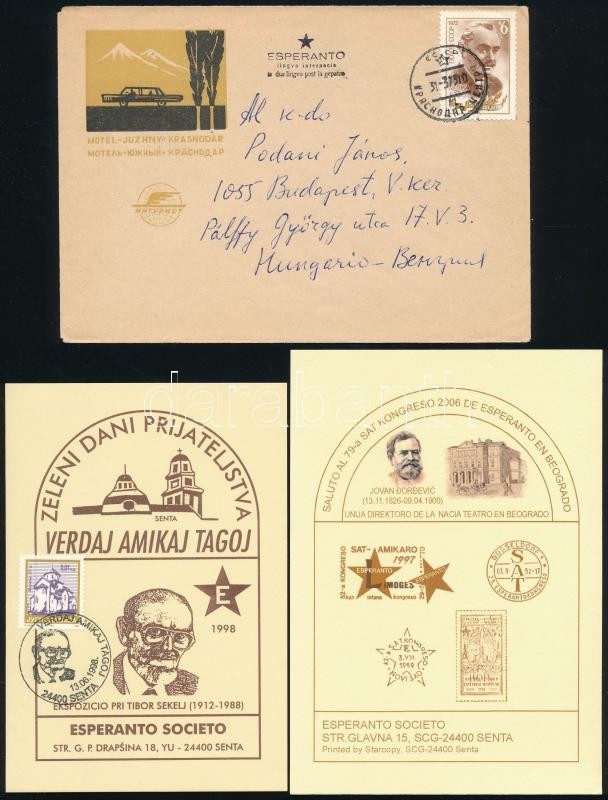 ESPERANTO
lingvo internacia
MOTEL «JUZHNY» KRASNODAR
МОТЕЛЬ «ЮЖНЫЙ» КРАСНОДАР
ИНТУРИСТ
1972
6
СССР
КРАСНОДАР
Al k-do
Podani János,
1055 Budapest, V. ker.
Pálffy György utca 17. V. 3.
Hungario - Венгрия
darabanth
ZELENI DANI PRIJATELJSTVA
SENTA
VERDAJ AMIKAJ TAGOJ
E
1998
VERDAJ AMIKAJ TAGOJ
13.06.1998.
24400 SENTA
EKSPOZICIO PRI TIBOR SEKELJ (1912-1988)
ESPERANTO SOCIETO
STR. G. P. DRAPŠINA 18, YU - 24400 SENTA
SALUTO AL 79-a SAT KONGRESO 2006 DE ESPERANTO EN BEOGRADO
JOVAN ĐORĐEVIĆ
(13.11.1826-09.04.1900)
UNUA DIREKTORO DE LA NACIA TEATRO EN BEOGRADO
SAT-AMIKARO
1997
52-a KONGRESO
ESPERANTO
LIMOGES
ESPERANTO
kun infana kongreso
DÜSSELDORF
SAT
03.8 52-17
SAT KONGRESO
3.VII.
1969
NOVI SAD
ESPERANTO SOCIETO
STR.GLAVNA 15, SCG-24400 SENTA
Printed by Starcopy, SCG-24400 Senta